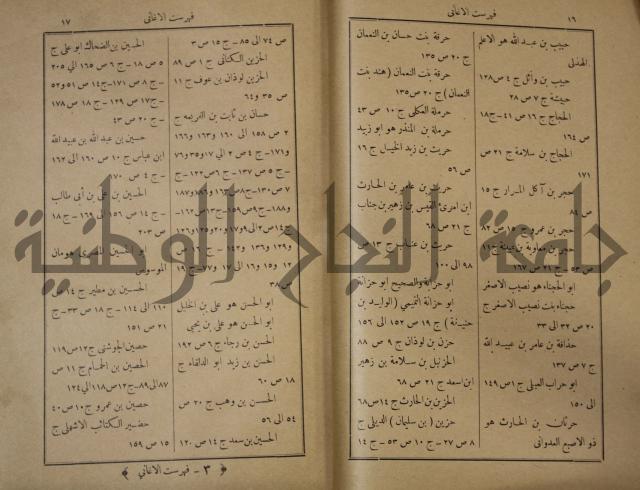 ١٦
فهرست الاغانى
حبيب بن عبد الله هو الاعلم
الهذلى
حبيب بن وائل ج ٤ ص ١٢٨
حبيشة ج ٧ ص ٢٨
الحجاج ج ١٦ ص ٤١ - ج ١٨
ص ١٦٤
الحجاج بن سلامة ج ٢١ ص
١٧١
حجر بن آكل المرار ج ١٥
ص ٨٤
حجر بن عمرو ج ١٥ ص ٨٢
حجر بن معاوية بن عيينة ج ١١
ص ٥٢ - ج ٢١ ص ١٦٧
ابو الحجناء هو نصيب الاصغر
حجناء بنت نصيب الاصغر ج
٢٠ ص ٣٢ الى ٣٣
حذافة بن عامر بن عبيد الله
ج ٧ ص ١٣٧
ابو حراب العبلى ج ١ ص ١٤٩
الى ١٥٠
حرثان بن الحارث هو
ذو الاصبع العدوانى
حرقة بنت حسان بن النعمان
ج ٢٠ ص ١٣٥
حرقة بنت النعمان (هند بنت
النعمان) ج ٢٠ ص ١٣٥
حرملة العكلى ج ١٠ ص ٤٣
حرملة بن المنذر هو ابو زبيد
حريث بن زيد الخيل ج ١٦
ص ٥٦
حريث بن عامر بن الحارث
ابن امرئ القيس بن زهير بن جناب
ج ٢١ ص ٦٨
حريث بن عناب ج ١٣ ص
٩٨ الى ١٠٠
ابو حزابة والصحيح ابو حزانة
ابو حزابة التميمى (الوليد بن
حنيفة) ج ١٩ ص ١٥٢ الى ١٥٦
حزن بن لوذان ج ٩ ص ٨٨
الحزنبل بن سلامة بن زهير
ابن اسعد ج ٢١ ص ٦٨
الحزن بن الحارث ج ١٤ ص ٦٨
حزين (بن سليمان) الديلى ج
٨ ص ٢٧ - ج ١٠ ص ٥٣ - ج ١٤
فهرست الاغانى
١٧
ص ٧٤ الى ٨٥ - ج ١٥ ص ٣
الحزين الكنانى ج ١ ص ٨٩
الحزين لوذان بن عوف ج ١١
ص ٣٥ و ٦٤
حسان بن ثابت بن الفريعة ج
٢ ص ١٥٨ الى ١٦٠ و ١٦٣ و ١٦٦
و ١٧١ - ج ٤ ص ٢ الى ١٧ و ٣٥ و ٧٦
- ج ٥ ص ١٣٧ - ج ٦ ص ١٢٢ - ج
ص ٣٨
ابو الحسن هو على بن الخليل
ابو الحسن هو على بن يحيى
الحسن بن رجاء ج ٦ ص ١٩٢
الحسن بن زيد ابو الدلقاء ج
١٨ ص ٦٠
الحسن بن وهب ج ٢٠ ص
٥٤ الى ٥٦
الحسين بن سعد ج ١٤ ص ١٢٠
الحسين بن الضحاك ابو على ج
٥ ص ١٨ - ج ٦ ص ١٦٥ الى ٢٠٥
- ج ٨ ص ١٧١ - ج ١٤ ص ٥١ و ٥٢
- ج ١٧ ص ١٢٩ - ج ١٨ ص ١٧٨
- ج ٢٠ ص ٤٣
حسين بن عبد الله بن عبيد الله
ابن عباس ج ١٠ ص ١٦٠ الى ١٦٢
- ج ٤ ص ١٧٠
الحسين بن على بن ابى طالب
- ج ١٤ ص ١٥٦ الى ١٦٩ - ج ١٨
ص ٢٠٣
الحسين بن مطير ج ١٤ ص
١١٠ الى ١١٤ - ج ١٨ ص ٣٣ - ج
٢١ ص ١٥١
حصين الجوشنى ج ١٢ ص ١١٩
الحصين بن الحمام ج ١١ ص
٨٧ الى ٨٩ - ج ١٢ ص ١١٨ الى ١٢٤
حصين بن عمرو ج ١٠ ص ٤٠
حضير الكتائب الاشهلى ج
١٥ ص ١٥٩
٣ - فهرست الاغانى
جامعة النجاح الوطنية